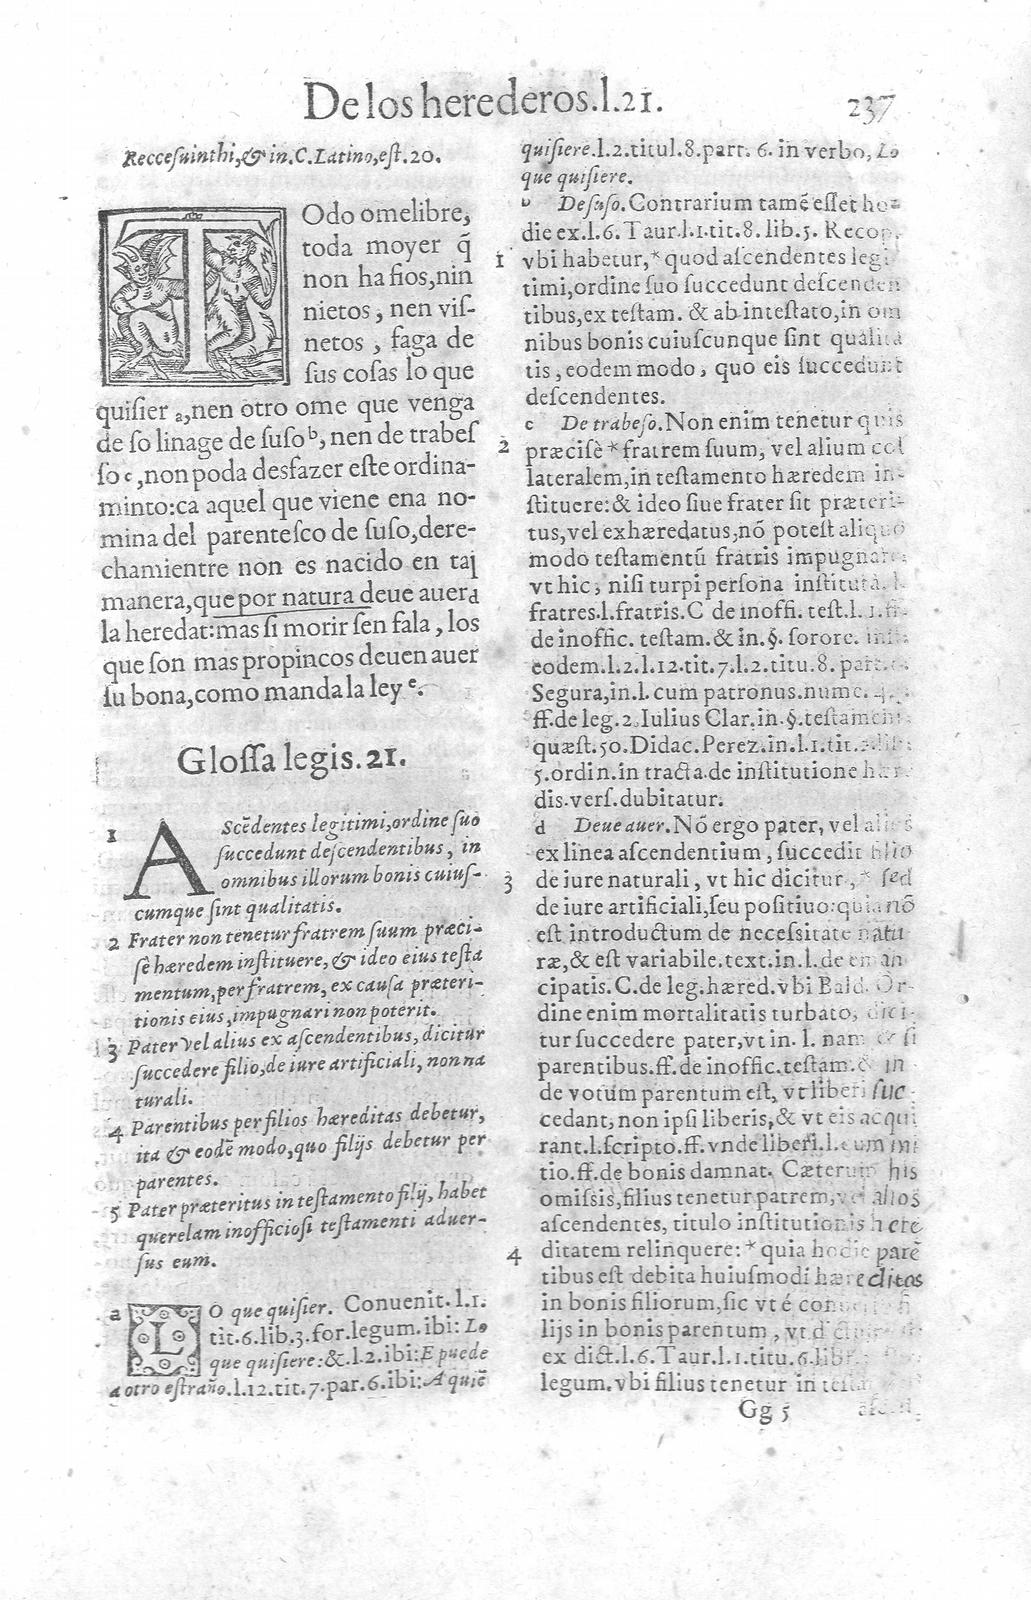 De los herederos.l.21.
237
Reccesuinthi,& in.C.Latino,est.20.
TOdo omelibre,
toda moyer q̃
non ha fios,nin
nietos, nen vis-
netos, faga de
sus cosas lo que
quisier a,nen otro ome que venga
de so linage de suso b, nen de trabes
so c,non poda desfazer este ordina-
minto:ca aquel que viene ena no-
mina del parentesco de suso,dere-
chamientre non es nacido en tal
manera,que por natura deue auer d
la heredat:mas si morir sen fala, los
que son mas propincos deuen auer
su bona,como manda la ley e.
Glossa legis.21.
1 AScẽdentes legitimi,ordine suo
succedunt descendentibus, in
omnibus illorum bonis cuius-
cumque sint qualitatis.
2 Frater non tenetur fratrem suum præci-
sè hæredem instituere,& ideo eius testa
mentum,per fratrem, ex causa præteri-
tionis eius,impugnari non poterit.
3 Pater vel alius ex ascendentibus, dicitur
succedere filio,de iure artificiali, non na
turali.
4 Parentibus per filios hæreditas debetur,
ita & eodẽ modo,quo filijs debetur per
parentes.
5 Pater præteritus in testamento filij, habet
querelam inofficiosi testamenti aduer-
sus eum.
a LO que quisier. Conuenit.l.1.
tit.6.lib.3.for.legum.ibi: Lo
que quisiere:&.l.2.ibi:E puede
a otro estraño.l.12.tit.7.par.6.ibi:A quiẽ
quisiere.l.2.titul.8.part. 6. in verbo, Lo
que quisiere.
b De suso.Contrarium tamẽ esset ho-
die ex.l.6. Taur.l.1.tit.8. lib.5. Recop.
1 vbi habetur,*quod ascendentes legi
timi,ordine suo succedunt descenden
tibus,ex testam. & ab intestato,in om
nibus bonis cuiuscunque sint qualita
tis, eodem modo, quo eis succedunt
descendentes.
c De trabeso.Non enim tenetur quis
2 præcisè *fratrem suum, vel alium col
lateralem,in testamento hæredem in-
stituere:& ideo siue frater sit præteri-
tus,vel exhæredatus,nõ potest aliquo
modo testamentũ fratris impugnare
vt hic, nisi turpi persona instituta.
fratres.l.fratris.C de inoffi. test.l.1.ff.
de inoffic. testam.& in.§. sorore.
eodem.l.2.l.12.tit.7.l.2.titu.8. part.
Segura,in.l.cum patronus.nume.
ff.de leg.2.Iulius Clar.in.§.testamen
quæst.50.Didac.Perez.in.l.1.tit.
5.ordin.in tracta.de institutione hær
dis.vers.dubitatur.
d Deue auer.Nõ ergo pater, vel alius
ex linea ascendentium, succedit filio
3 de iure naturali, vt hic dicitur,* sed
de iure artificiali,seu positiuo:quia nõ
est introductum de necessitate natu
ræ,& est variabile.text.in.l.de eman
cipatis.C.de leg.hæred.vbi Bald. Or-
dine enim mortalitatis turbato, dici-
tur succedere pater,vt in. l. nam & si
parentibus.ff.de inoffic.testam.& in
de votum parentum est, vt liberi suc-
cedant, non ipsi liberis,& vt eis acqui
rant.l.scripto.ff.vnde liberi.l.cum ra
tio.ff.de bonis damnat. Cæterum his
omissis,filius tenetur patrem,vel alios
ascendentes, titulo institutionis hære
4 ditatem relinquere:*quia hodie parẽ
tibus est debita huiusmodi hæreditas
in bonis filiorum,sic vt é con fi
lijs in bonis parentum, vt
ex dict.l.6.Taur.l.1.titu.6.lib.
legum.vbi filius tenetur in
Gg 5